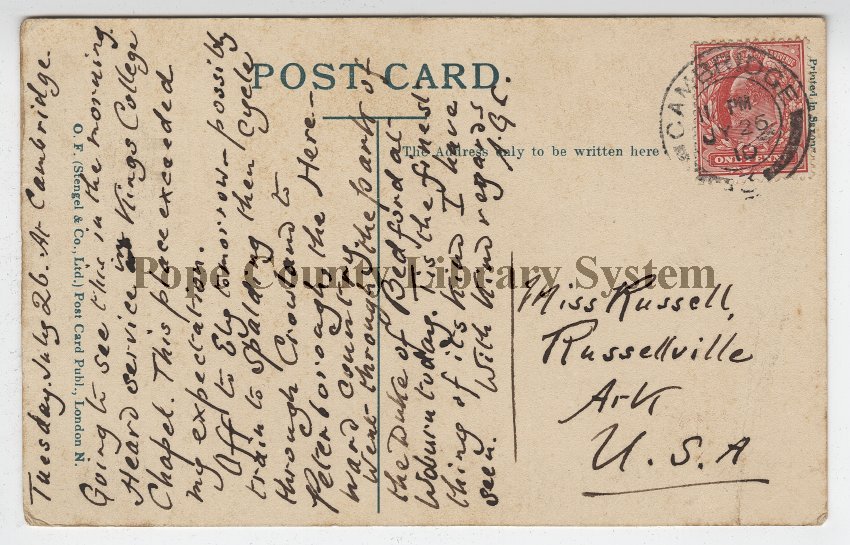 POST CARD.
The Address only to be written here
Printed in Saxony
O. F. (Stengel & Co., Ltd.) Post Card Publ., London N.
CAMBRIDGE
PM
JY 26
10
ONE PENNY
Tuesday. July 26. At Cambridge.
Going to see this in the morning.
Heard service in Kings College
Chapel. This place exceeded
my expectation.
Off to Ely tomorrow - possibly
train to Spalding then cycle
through Crowland to
Peterborough the Here-
ward country.
Went through the park of
the Duke of Bedford at
Woburn today. T'is the finest
thing of its kind I have
seen. With kind regards
Miss Russell,
Russellville
Ark
U.S.A
Pope County Library System